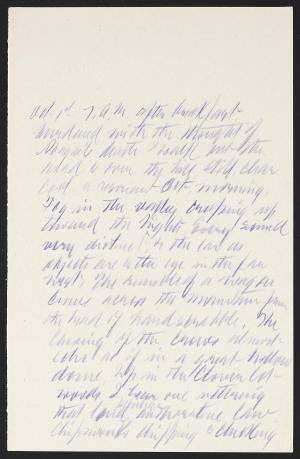 Oct. 1st 7. A.M. after breakfast
burdened with the thought of
death I walk out the
road & over the hill still clear
cool, a resonant Oct. morning.
Fog in the valley creeping up
toward the light; every sound
very distinct; to the ear as
objects are to the eye in the far
west. The rumble of a wagon
comes across the mountain from
the head of hardscrabble. The
cawing of the crows almost
echo as if in a great hollow
dome. Up in the Clover lot
woods I hear one uttering
that loud caw
chipmunks chipping & clucking